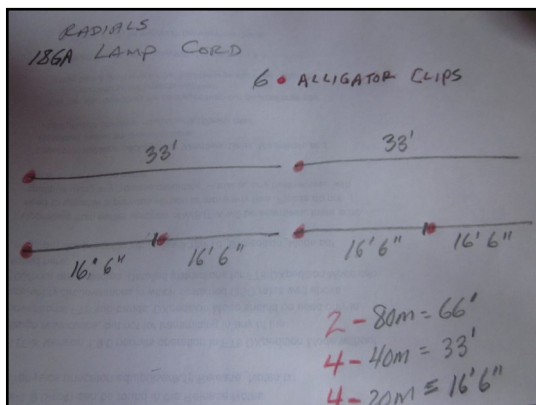 RADIALS
18GA LAMP CORD
6 • ALLIGATOR CLIPS
33' 33'
16' 6" 16' 6" 16' 6" 16' 6"
2 - 80m = 66'
4 - 40m = 33'
4 - 20m = 16'6"